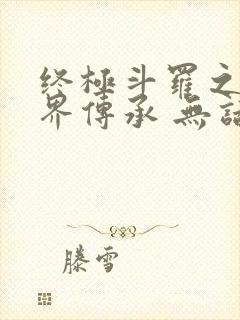 终極斗羅之
界傳承 無
滕雪